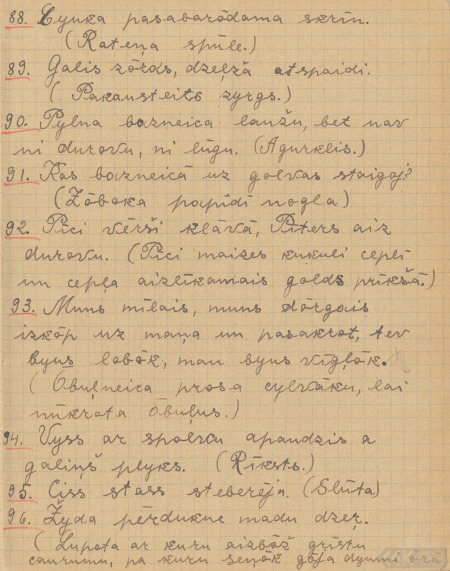 88. Cyuka pasabarōdama skrīn.
(Rateņa spūle.)
89. Galis zōrds, dzeļža atspaidi.
(Pakausteits zyrgs.)
90. Pylna bazneica laužu, bet nav
ni durovu, ni lūgu. (Agurklis.)
91. Kas bazneicā uz golvas staigoj?
(Zōboka papīdi nogla)
92. Pīci vērši klāvā, Pīters aiz
durovu. (Pīci maizes kukuli cepli
un cepļa aizlīkamais golds prīkšā.)
93. Muns mīlais, muns dōrgais
izkōp uz maņa un pasakrot, tev
byus lobōk, man byus vīgļōk.
(Ōbuļneica prosa cylvāku, lai
nūkrota ōbuļus.)
94. Vyss ar spolvu apaudzis a
galiņš plyks. (Rīksts.)
95. Ciss stass steberēja. (Slūta)
96. Žyda pērdukne madu dzeŗ.
(Lupota ar kuru aizbōž grīstu
caurumu, pa kuru senōk gōja dyumi ōrā